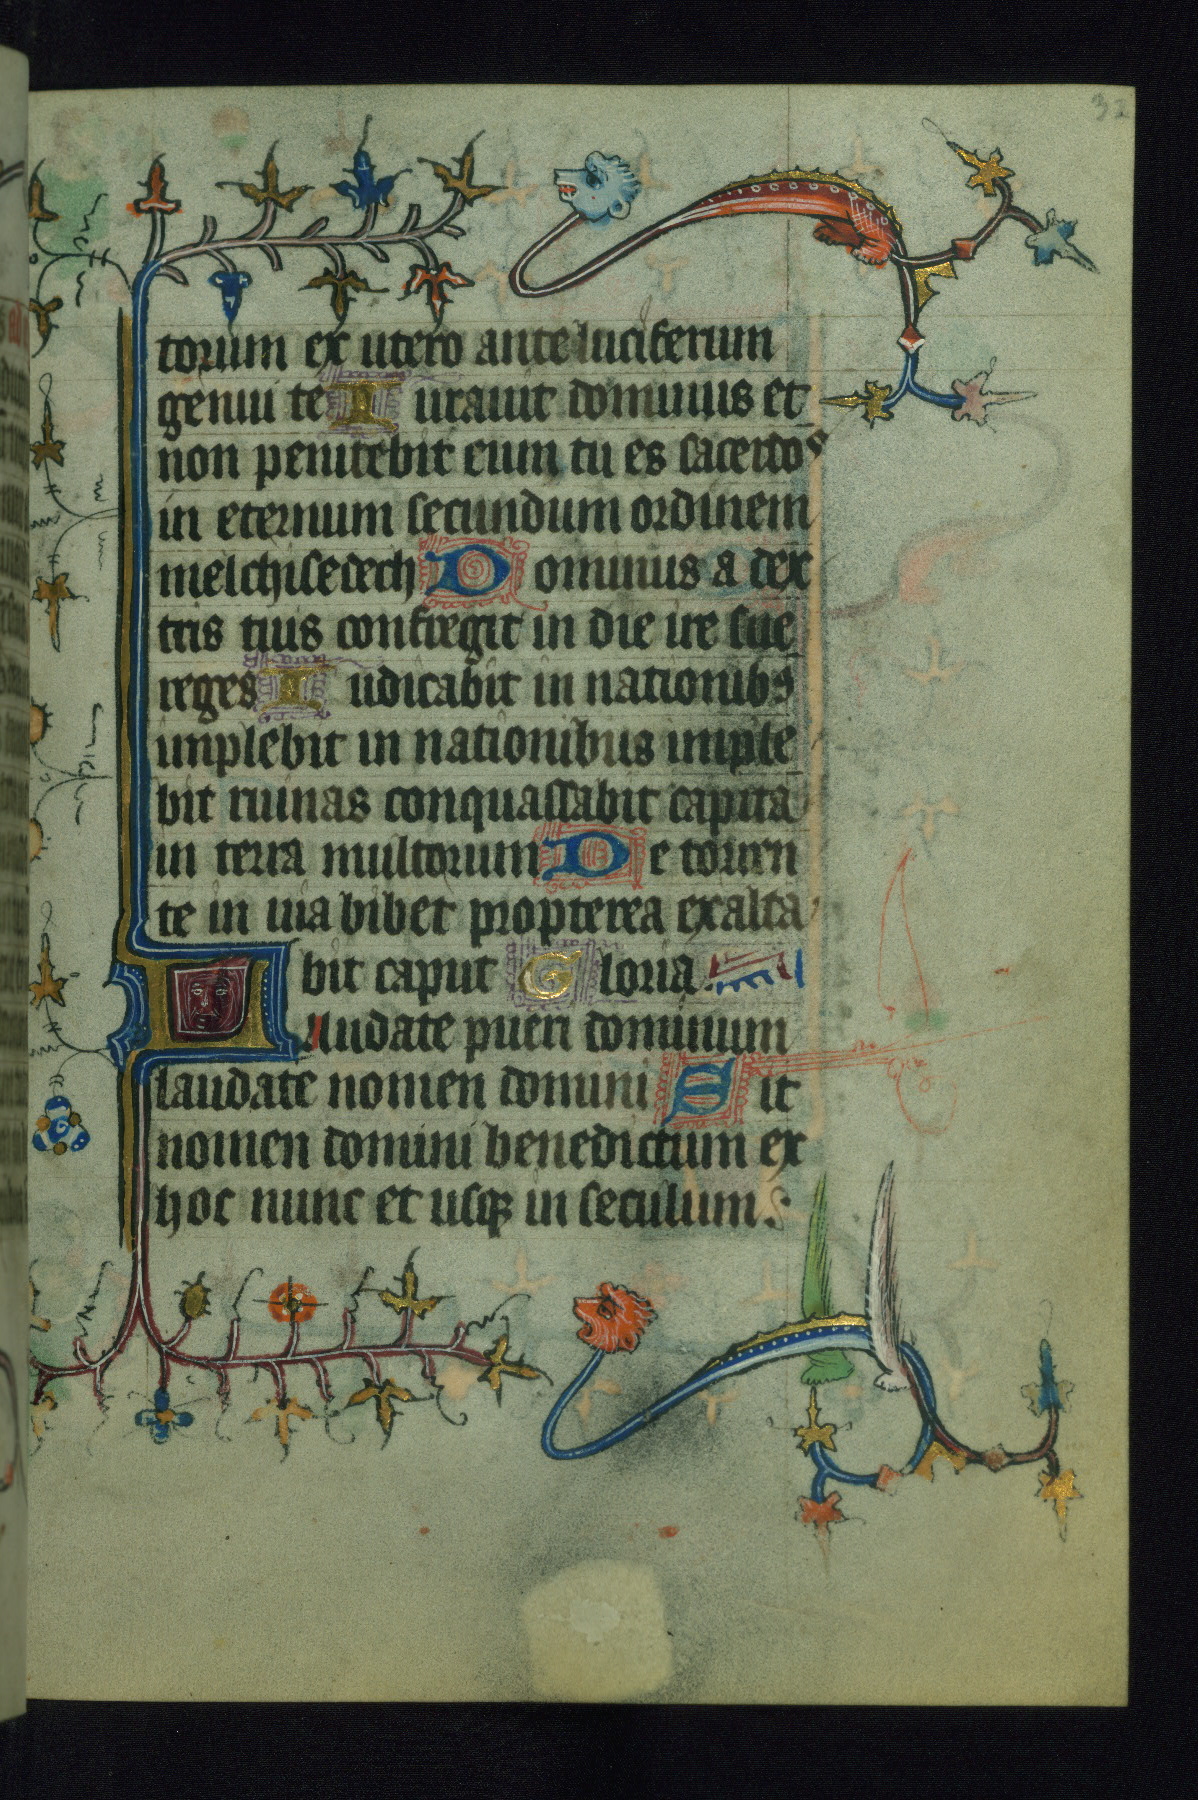 32
torum ex utero ante luciferum
genui te Iurauit dominus et
non penitebit eum tu es sacerdos
in eternum secundum ordinem
melchisedech Dominus a dex
tris tuis confregit in die ire sue
reges Iudicabit in nationibs
implebit in nationibus imple
bit ruinas conquassabit capita
in terra multorum De torren
te in uia bibet propterea exalta
bit caput Gloria
Laudate pueri dominum
laudate nomen domini Sit
nomen domini benedictum ex
hoc nunc et usqꝫ in seculum.